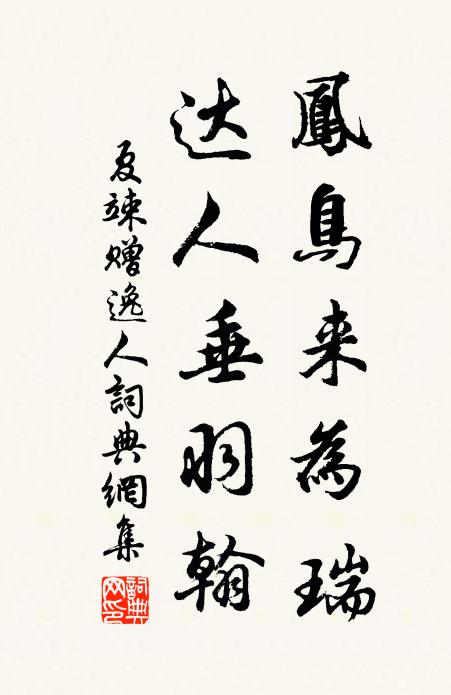 鳳鳥来為瑞
达人垂羽翰
夏竦赠逸人詞典網集
詞典網印